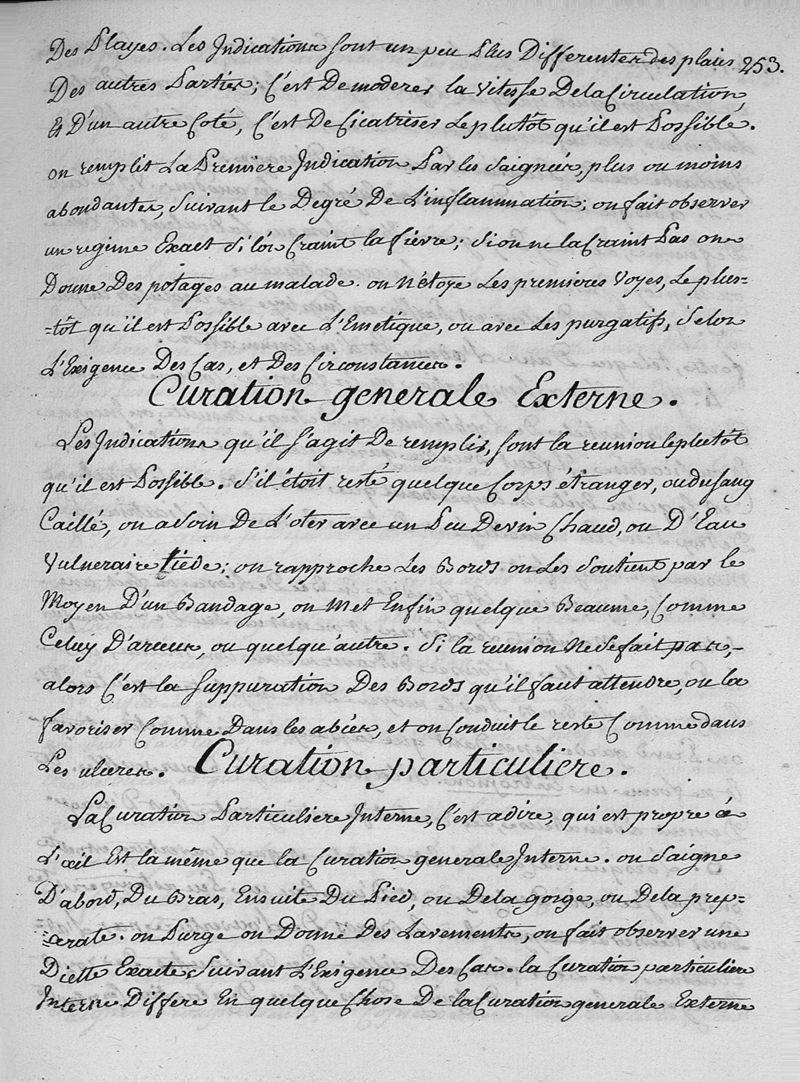 253.
Des Playes. Les Indications sont un peu Plus Differentes des plaies
Des autres Parties; C'est De moderer la vitesse De la Circulation
Et D'un autre Coté, C'est De Cicatriser Le plutôt qu'il est Possible.
on remplit La Premiere Indication Par les Saignées, plus ou moins
abondantes, Suivant le Degré De L'inflammation; on fait observer
un regime Exact Si l'on Craint la fiévre; Si on ne la Craint Pas on
Donne Des potages au malade. on Nétoye Les premieres Voyes, Le plus-
-tôt qu'il est Possible avec L'Emetique, ou avec Les purgatifs, Selon
L'Exigence Des Cas, et Des Circonstances.
Curation generale Externe.
Les Indications qu'il s'agit De remplir, sont la reunion le plutôt
qu'il est Possible. S'il étoit resté quelque Corps étranger, ou du sang
Caillé, on a Soin De L'oter avec un Peu De vin Chaud, ou D'Eau
Vulneraire tiéde; on rapproche Les Bords on Les Soutient par le
Moyen D'un Bandage, on Met Enfin quelque Beaume, Comme
Celuy D'arceus, ou quelqu'autre. Si la reunion Ne se fait pas,
alors C'est la Suppuration Des Bords qu'il faut attendre, ou la
favoriser Comme Dans les abcés, et on Conduit le reste Comme dans
Les ulceres. Curation particuliere.
La Curation Particuliere Interne, C'est a dire, qui est propre à
L'œil Est la même que la Curation generale Interne. on Saigne
D'abord, Du Bras, Ensuite Du Pied, ou De la gorge, ou De la prep-
-arate. on Purge on Donne Des Lavements, on fait observer une
Diette Exacte Suivant L'Exigence Des Cas. la Curation particuliere
Interne Differe En quelque Chose De la Curation generale Externe